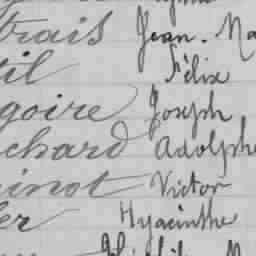 trais Jean. Ma
til Félix
goire Joseph
chard Adolphe
inot Victor
er Hyacinthe